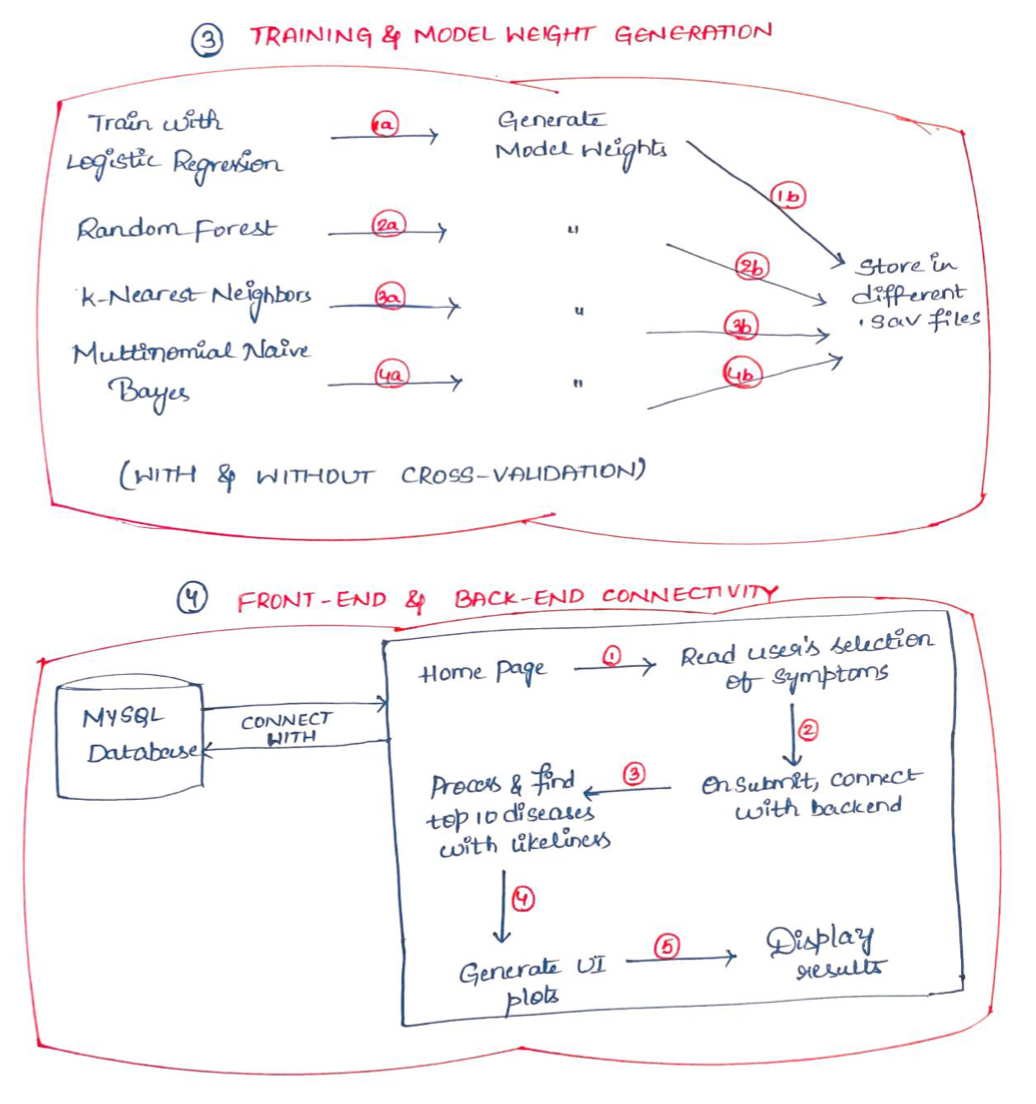 3 TRAINING & MODEL WEIGHT GENERATION
Train with
Logistic Regression
1a
Generate
Model Weights
1b
Random Forest
2a
"
2b
K-Nearest Neighbors
3a
"
3b
Multinomial Naive
Bayes
4a
"
4b
Store in
different
.sav files
(WITH & WITHOUT CROSS-VALIDATION)
4 FRONT-END & BACK-END CONNECTIVITY
MYSQL
Database
CONNECT
WITH
Home Page
1
Read user's selection
of symptoms
2
On submit, connect
with backend
3
Process & find
top 10 diseases
with likeliness
4
Generate UI
plots
5
Display
results